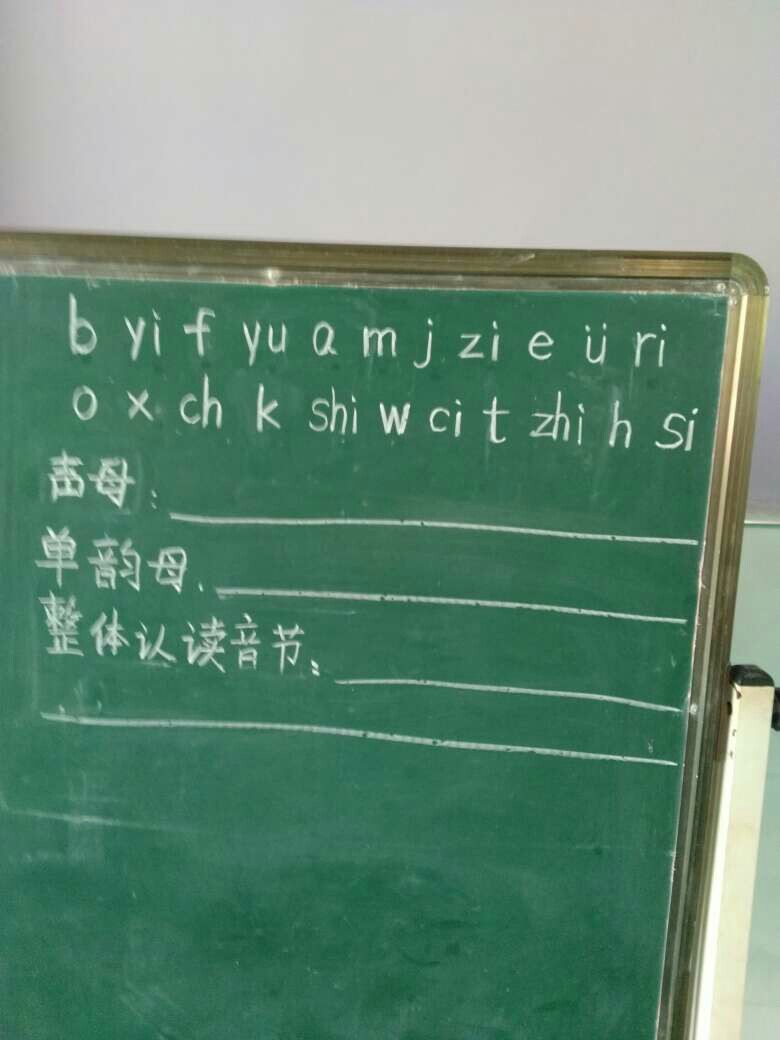 b yi f yu a m j zi e ü ri
o x ch k shi w ci t zhi h si
声母:
单韵母.
整体认读音节: